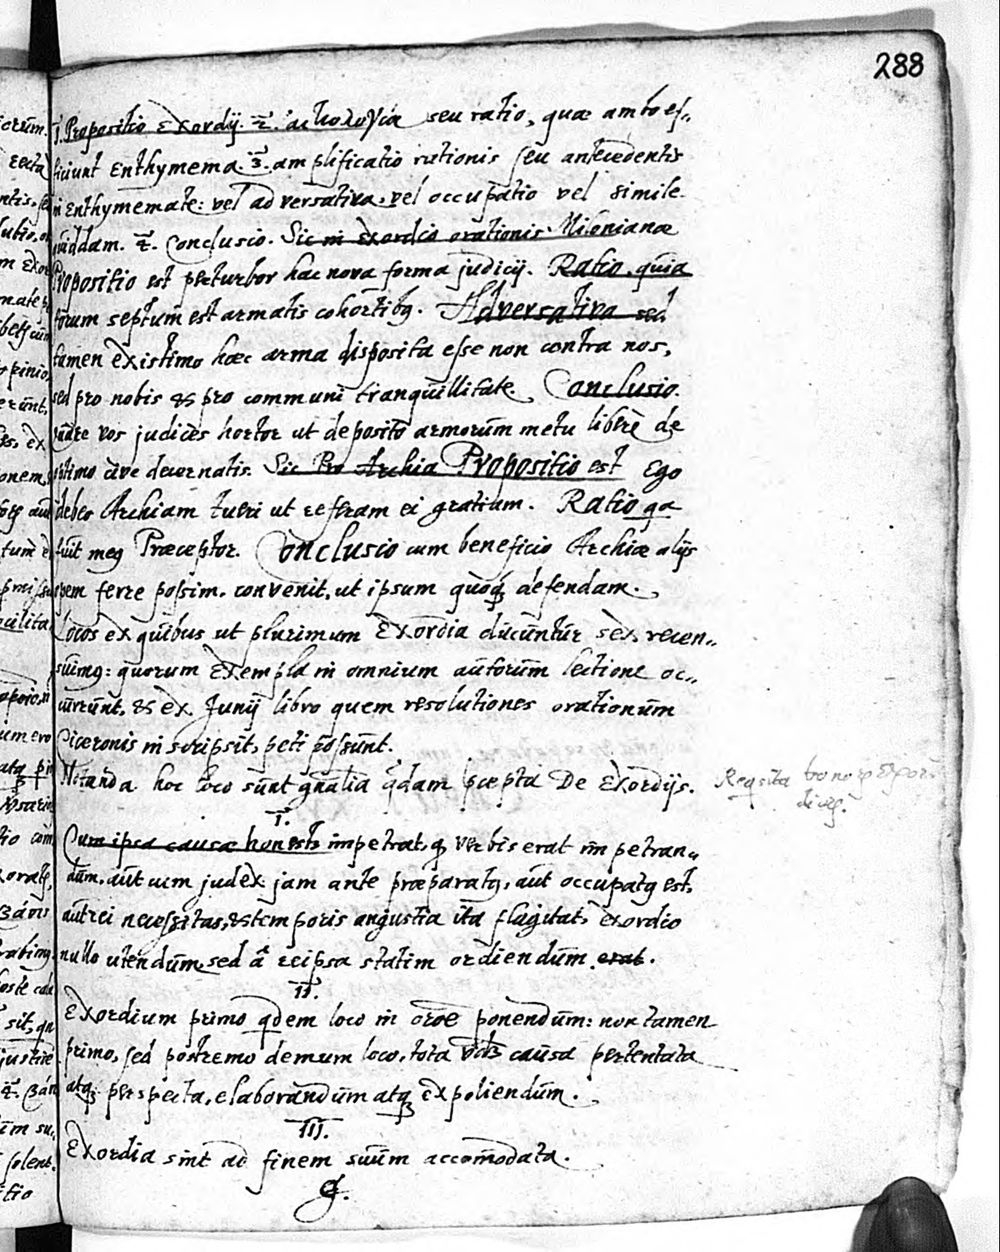 288
1. Propositio Exordij. 2. αἰτιολογία seu ratio, quæ ambo ef,,
ficiunt Enthymema. 3. amplificatio rationis seu antecedentis
in Enthymemate: vel adversativa, vel occupatio vel simile
quiddam. 4. Conclusio. Sic in exordio orationis Milonianæ
Propositio est perturbor hac nova forma judicij. Ratio, quia
forum septum est armatis cohortibg. Adversativa sed
tamen existimo hæc arma disposita esse non contra nos,
sed pro nobis & pro communi tranquillitate. Conclusio.
quare vos judices hortor ut deposito armorum metu libere de
optimo cive decernatis. Sic Pro Archia Propositio est Ego
debeo Archiam tueri ut referam ei gratiam. Ratio qa
fuit meg Præceptor. Conclusio cum beneficio Archiæ alijs
opem ferre possim, convenit, ut ipsum quoq defendam.
Locos ex quibus ut plurimum Exordia ducuntur sex recen,,
suimg: quorum exempla in omnium autorum lectione oc,,
currunt, & ex Junij libro quem resolutiones orationum
Ciceronis inscripsit, peti possunt.
Notanda hoc loco sunt gnalia qdam pcepta De Exordijs.
I.
Cum ipsa causæ honestas impetrat, q verbis erat impetran,,
dum, aut cum judex jam ante præparatg, aut occupatg est,
aut rei necessitas, & temporis angustia ita flagitat, exordio
nullo utendum, sed a reipsa statim ordiendum erat.
II.
Exordium primo qdem loco in oroe ponendum: non tamen
primo, sed postremo demum loco, tota causa pertentata
atq perspecta, elaborandum atq expoliendum.
III.
Exordia sint ad finem suum accommodata.